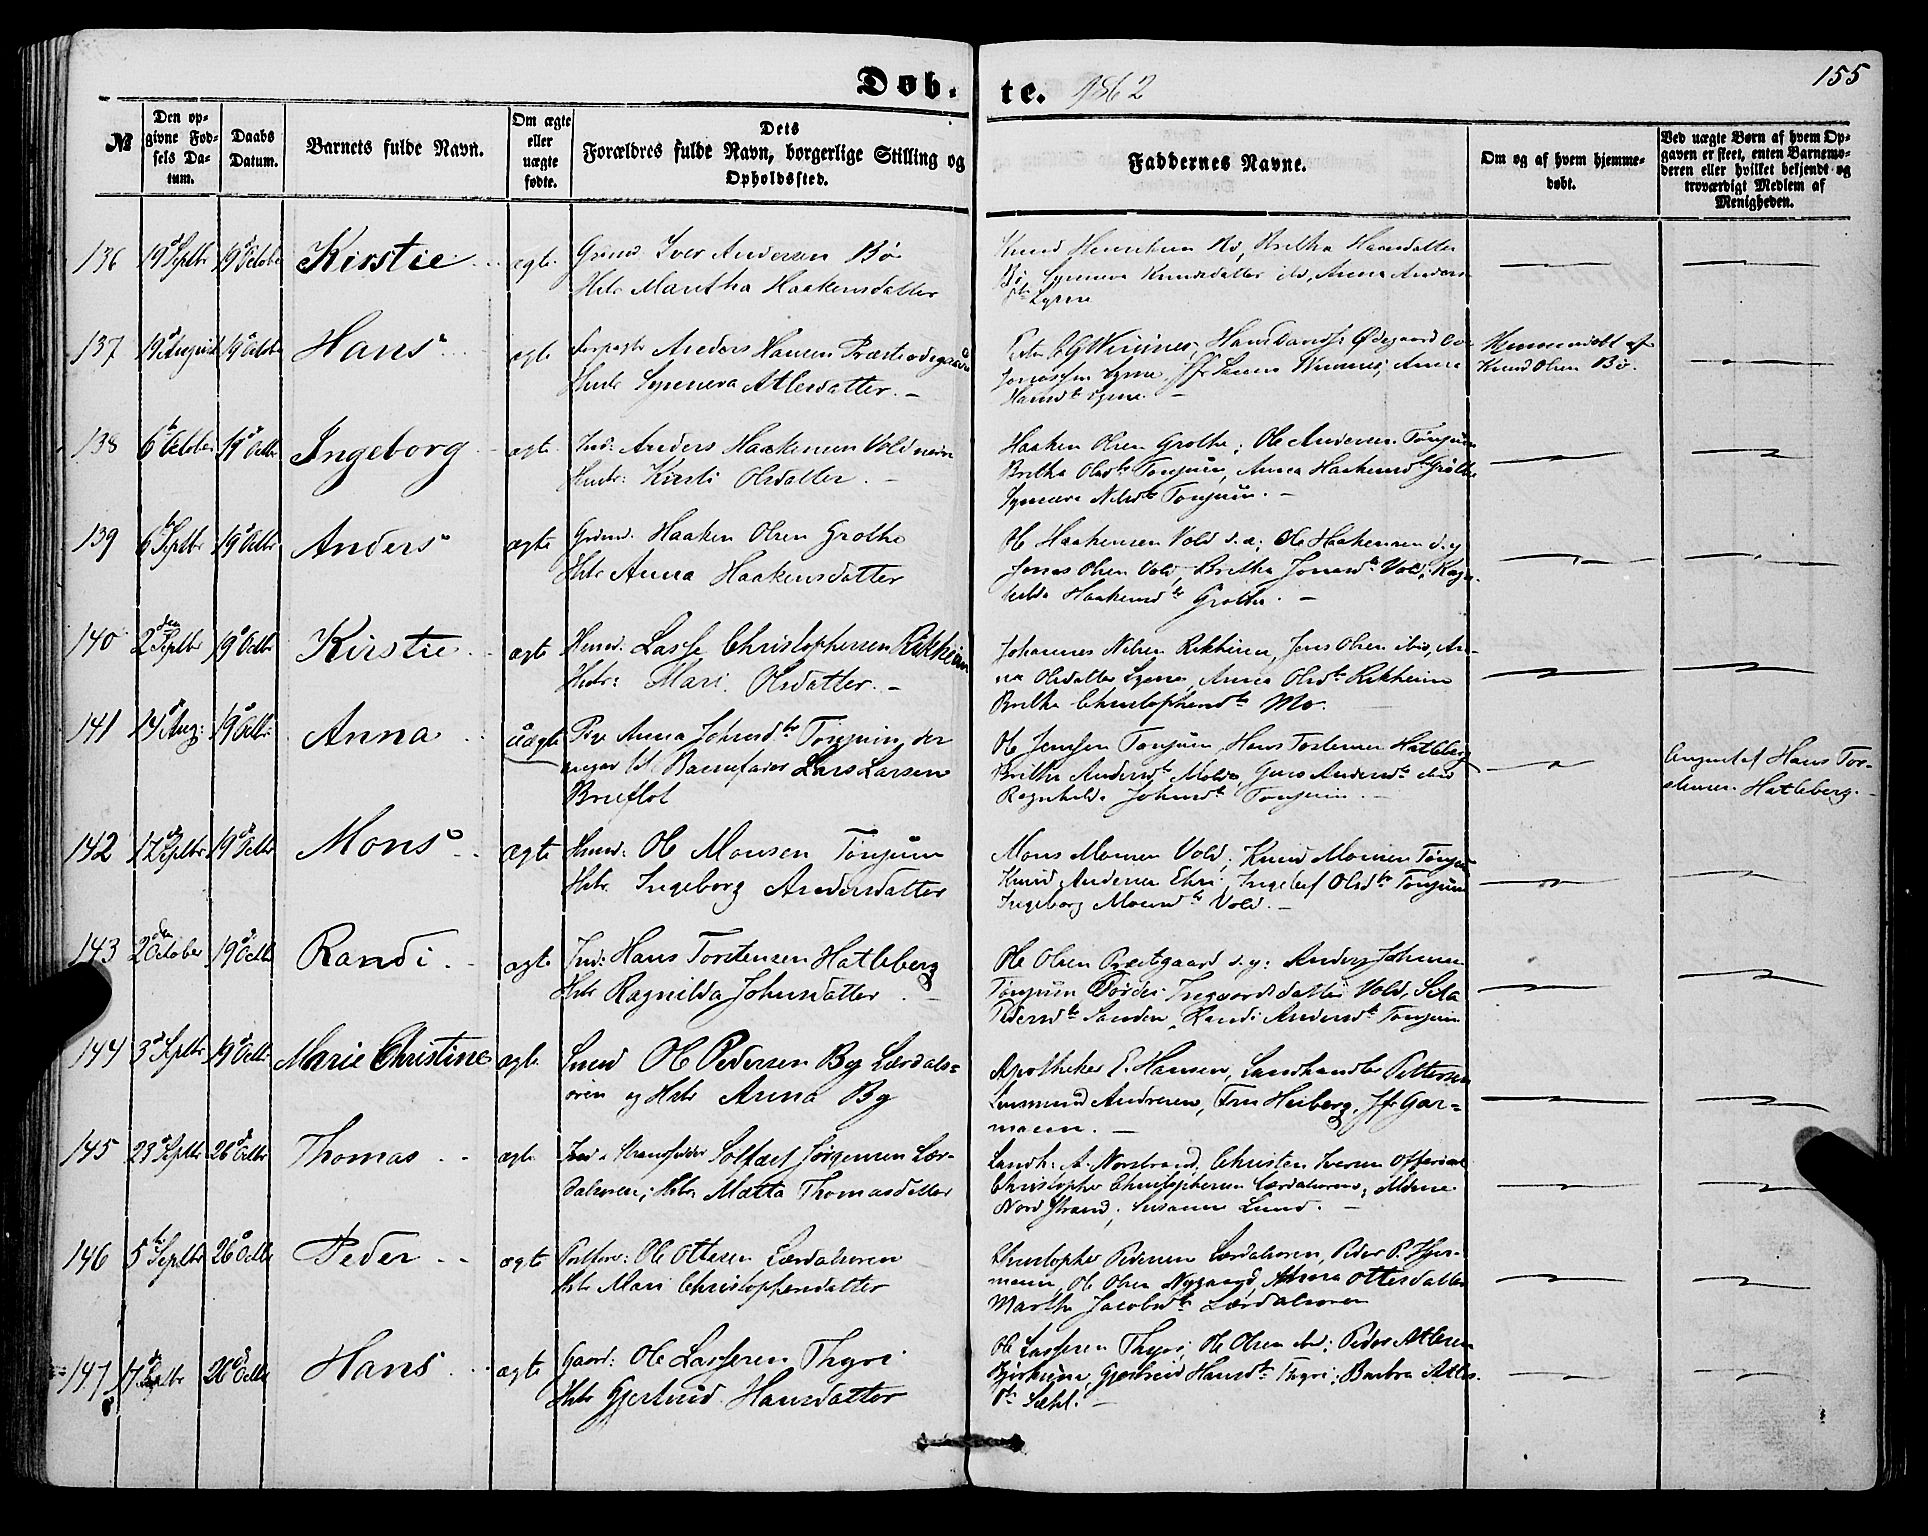 Døb-te. 1862
155
№
Den opgivne Fødsels Datum.
Daabs Datum.
Barnets fulde Navn.
Om ægte eller uægte fødte.
Dets Forældres fulde Navn, borgerlige Stilling og Opholdssted.
Faddernes Navne.
Om og af hvem hjemmedøbt.
Ved uægte Børn af hvem Opgaven er skeet, enten Barnemoderen eller hvilket bekjendt og troværdigt Medlem af Menigheden.
136 19d Septbr 19d October Kirstie ægte Iver Andersen Bø
Hstr Martha Haakensdatter
Knud Henriksen Bø, Britha Hansdatter
Bø, Synneva Knudsdatter ib, Anna Anders
dtr Lysne
137 19 August 19d Octobr Hans ægte Anders Hansen Præsteødegaard
Hustr Synneva Atlesdatter.
Winnes, Ødegaard
Lysne Winnes, Anna
Hansdtr Lysne.
Hjemmedøbt af
Knud Olsen Bø.
138 6te October 19d Octbr Ingeborg ægte Ind: Anders Haakensen Vold
Hustr: Kirsti Olsdatter.
Haaken Olsen Grothe; Ole Andersen Tønjum
Britha Olsdtr Tønjum, Anna Haakensdtr Grothe
Nilsdtr Tønjum.
139 6te Septbr 19d Octbr Anders ægte Grdmd. Haaken Olsen Grothe
Hstr Anna Haakensdatter
Ole Haakensen Vold d.æ; Ole Haakensen d.y
Jonas Olsen Vold, Britha Jonasdtr Vold, Ragn-
hilda Haakensdtr Grothe.
140 2den Septbr 19d Octbr Kirstie ægte Husmd. Lasse Christophersen Rikheim
Hstr: Mari Olsdatter.
Johannes Nilsen Rikheim, Jens Olsen ibid, An-
na Olsdatter Lysne, Anna Olsdtr Rikheim
Britha Christophersdtr Mo.
141 14d Aug: 19d Octbr: Anna uægte Pige Anna Johnsdtr Tønjum, der
angav til Barnefader Lars Larsen
Bruflot
Ole Jensen Tønjum, Hans Torstensen Hatleberg
Britha Andersdtr Molde, Andersdtr ibid
Ragnhilda Johnsdtr Tønjum.
Angivet af Hans Tor-
stensen Hatleberg.
142 Septbr 19d Octbr Mons ægte Husmd: Ole Monsen Tønjum
Hstr. Ingeborg Andersdatter
Mons Monsen Vold, Knud Monsen Tønjum
Knud Andersen Ehri, Olsdtr Tønjum
Ingeborg Monsdtr Vold.
143 2den October 19d Octb Randi ægte Ind: Hans Torstensen Hatleberg
Hstr Ragnilda Johnsdatter
Ole Olsen Præstgaard d.y: Anders Johnsen
Tønjum, Datter Vold, Sela
Pedersdtr Sanden, Randi Andersdtr Tønjum
144 3d Septbr 19d Octbr Marie Christine ægte Smed Ole Pedersen By Lærdals-
øren og Hstr Anna By
Apotheker E. Hansen, Landhandler Pettersen
Lensmand Andresen, Fru Heiberg, Jfr Gar-
mann.
145 28d Septbr 26d Octbr Thomas ægte Ind. Strandsidder Jørgensen Lær-
dalsøren; Hstr Matta Thomasdatter
Landh: A. Norstrand, Christen Iversen Offerdal
Christopher Christophersen Lærdalsøren,
Nordstrand, Susanne Lund.
146 5te Septbr 26d Octbr Peder ægte Ole Ottesen Lærdalsøren
Hstr Mari Christophersdatter
Christopher Pedersen Lærdalsøren, Peder P.
Ole Olsen Nygaard, Anna Ottesdatter
Martha Jacobsdtr Lærdalsøren
147 17d Septbr 26d Octbr Hans ægte Gaard: Ole Lassesen Thyri
Hstr Gjertrud Hansdatter
Ole Lassesen Thyri, Ole Olsen ibd; Peder Atlesen
Bjørkum, Gjertrud Hansdtr Thyri; Barbra Atles-
dtr Sæhl.